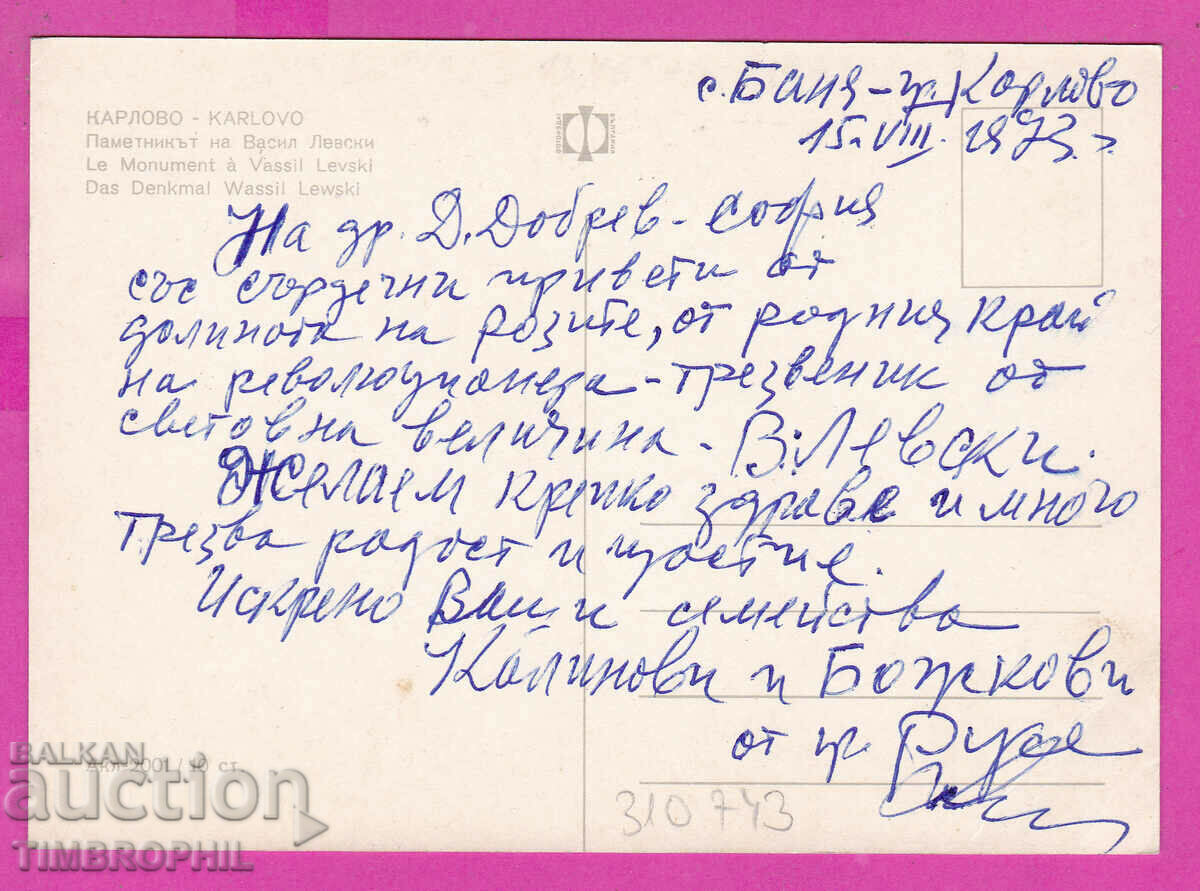 с. Баня - гр. Карлово
15. VIII. 1973 г.
КАРЛОВО - KARLOVO
Паметникът на Васил Левски
Le Monument à Vassil Levski
Das Denkmal Wassil Lewski
На др. Д. Добрев - София
със сърдечни привети от
долината на розите, от родния край
на революционера - трезвеник от
световна величина - В. Левски.
Желаем крепко здраве и много
трезва радост и щастие.
Искрено Ваши семейства
Калинови и Божкови
от гр. Русе
Акл-2001 / 10 ст.
310743
BALKAN
auction
TIMBROPHIL